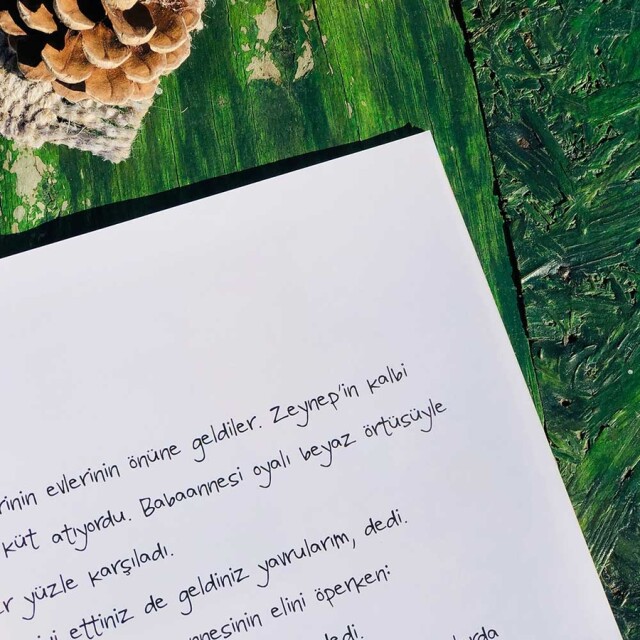 evlerinin önüne geldiler. Zeynep'in kalbi
küt atıyordu. Babaannesi oyalı beyaz örtüsüyle
yüzle karşıladı.
ettiniz de geldiniz yavrularım, dedi.
elini öperken:
dedi.